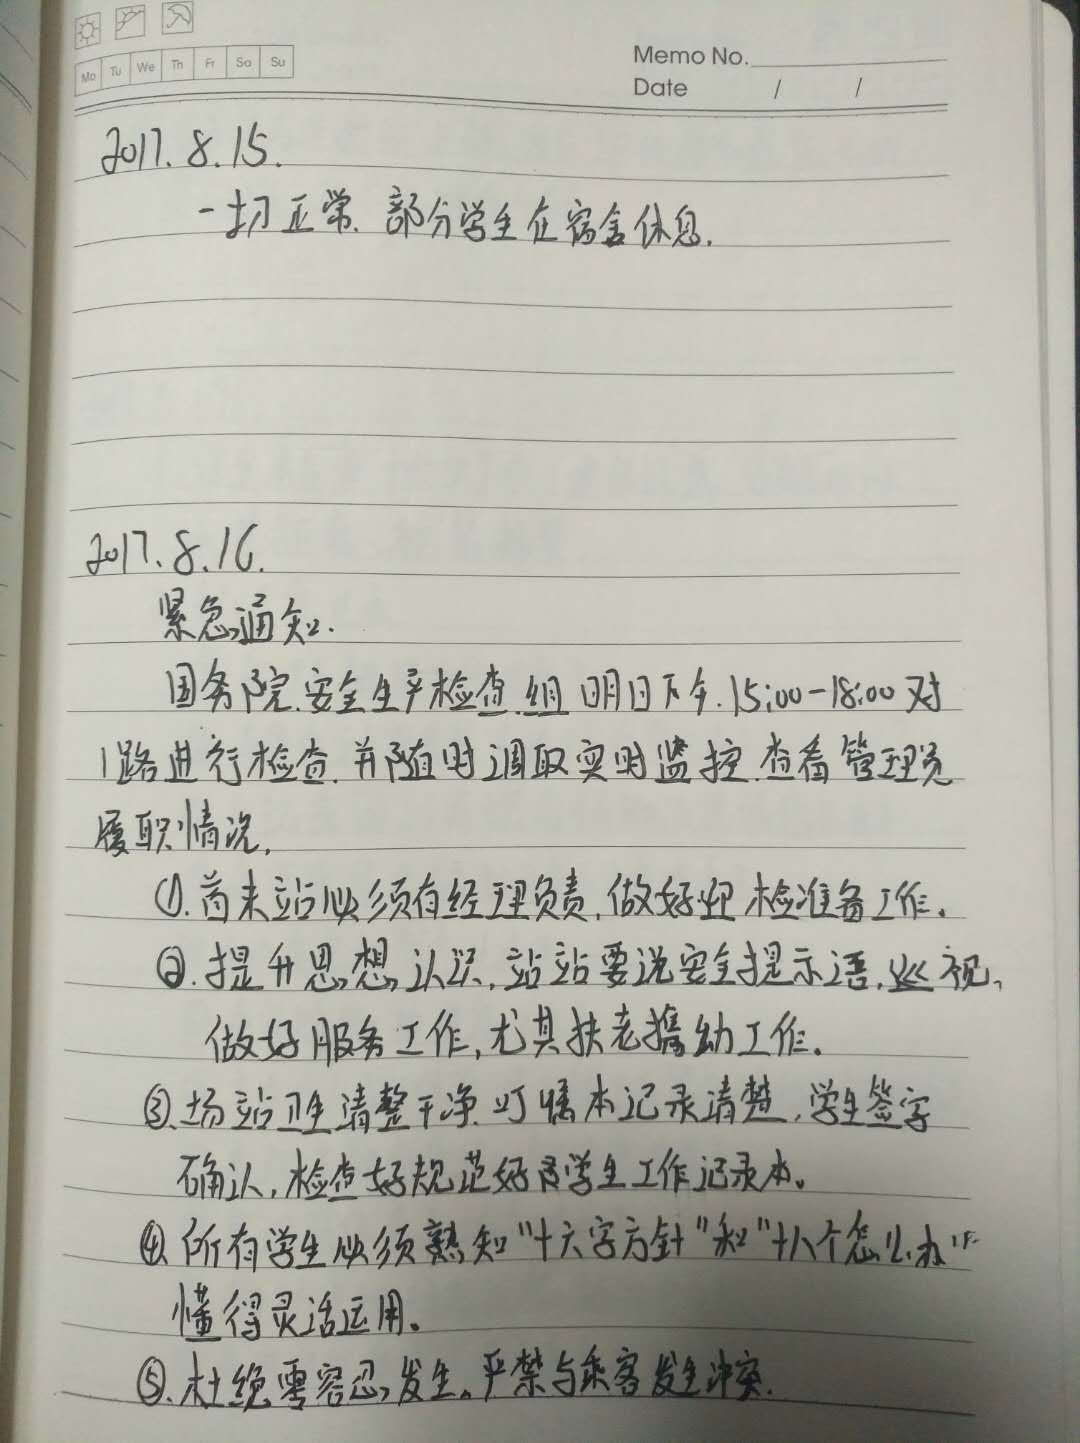 Mo Tu We Th Fr Sa Su
Memo No.
Date / /
2017.8.15.
一切正常.部分学生在宿舍休息.
2017.8.16.
紧急通知.
国务院.安全生产检查组明日下午.15:00-18:00对
1路进行检查.并随时调取实时监控.查看管理员
履职情况.
①.首末站必须有经理负责,做好迎检准备工作.
②.提升思想认识,站站要说安全提示语,巡视、
做好服务工作,尤其扶老携幼工作.
③.场站卫生清整干净.叮嘱本记录清楚,学生签字
确认,检查好规范好学生工作记录本。
④.所有学生必须熟知"十六字方针"和"十八个怎么办"
懂得灵活运用。
⑤.杜绝零容忍发生。严禁与乘客发生冲突.